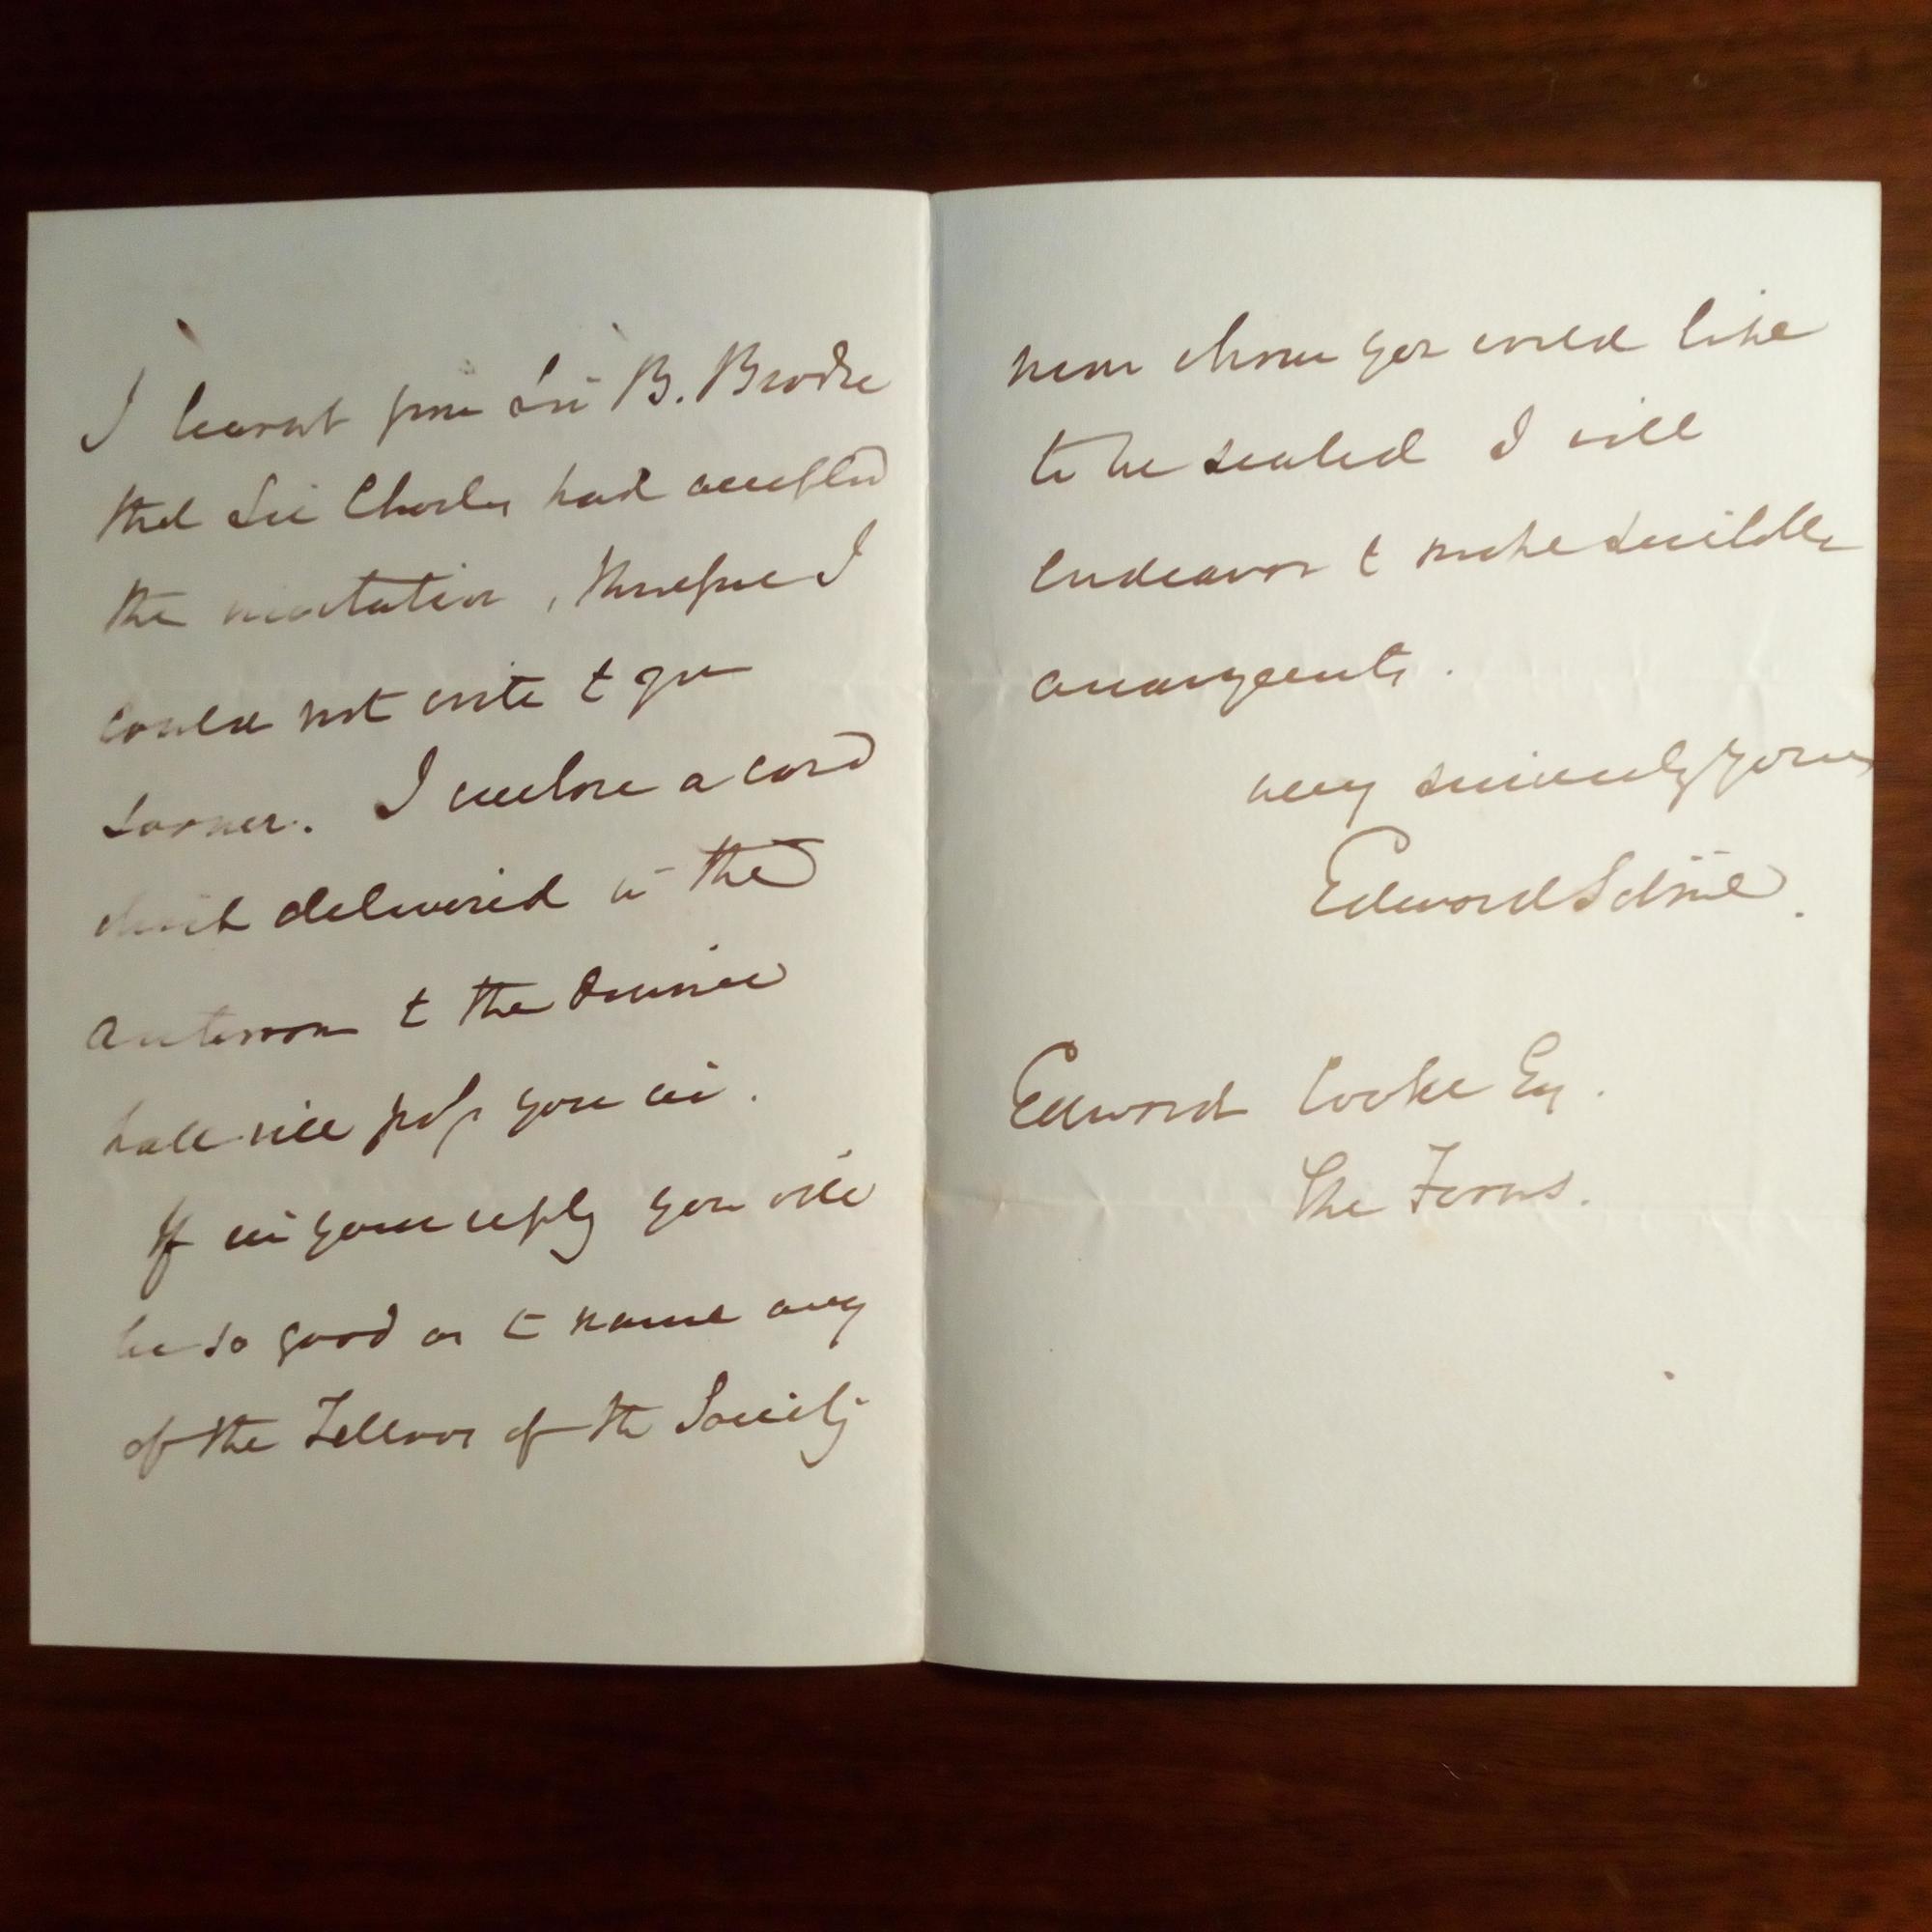 I learnt from Sir B. Brodie
that Sir Charles had accepted
the invitation, therefore I
could not write to you
sooner. I enclose a card
which delivered in the
anteroom to the Dinner
hall will pass you in.
If in your reply you will
be so good as to name any
of the Fellows of the Society
near whom you would like
to be seated I will
endeavor to make suitable
arrangements.
very sincerely yours
Edward
Edward Cooke Esq.
The Ferns.